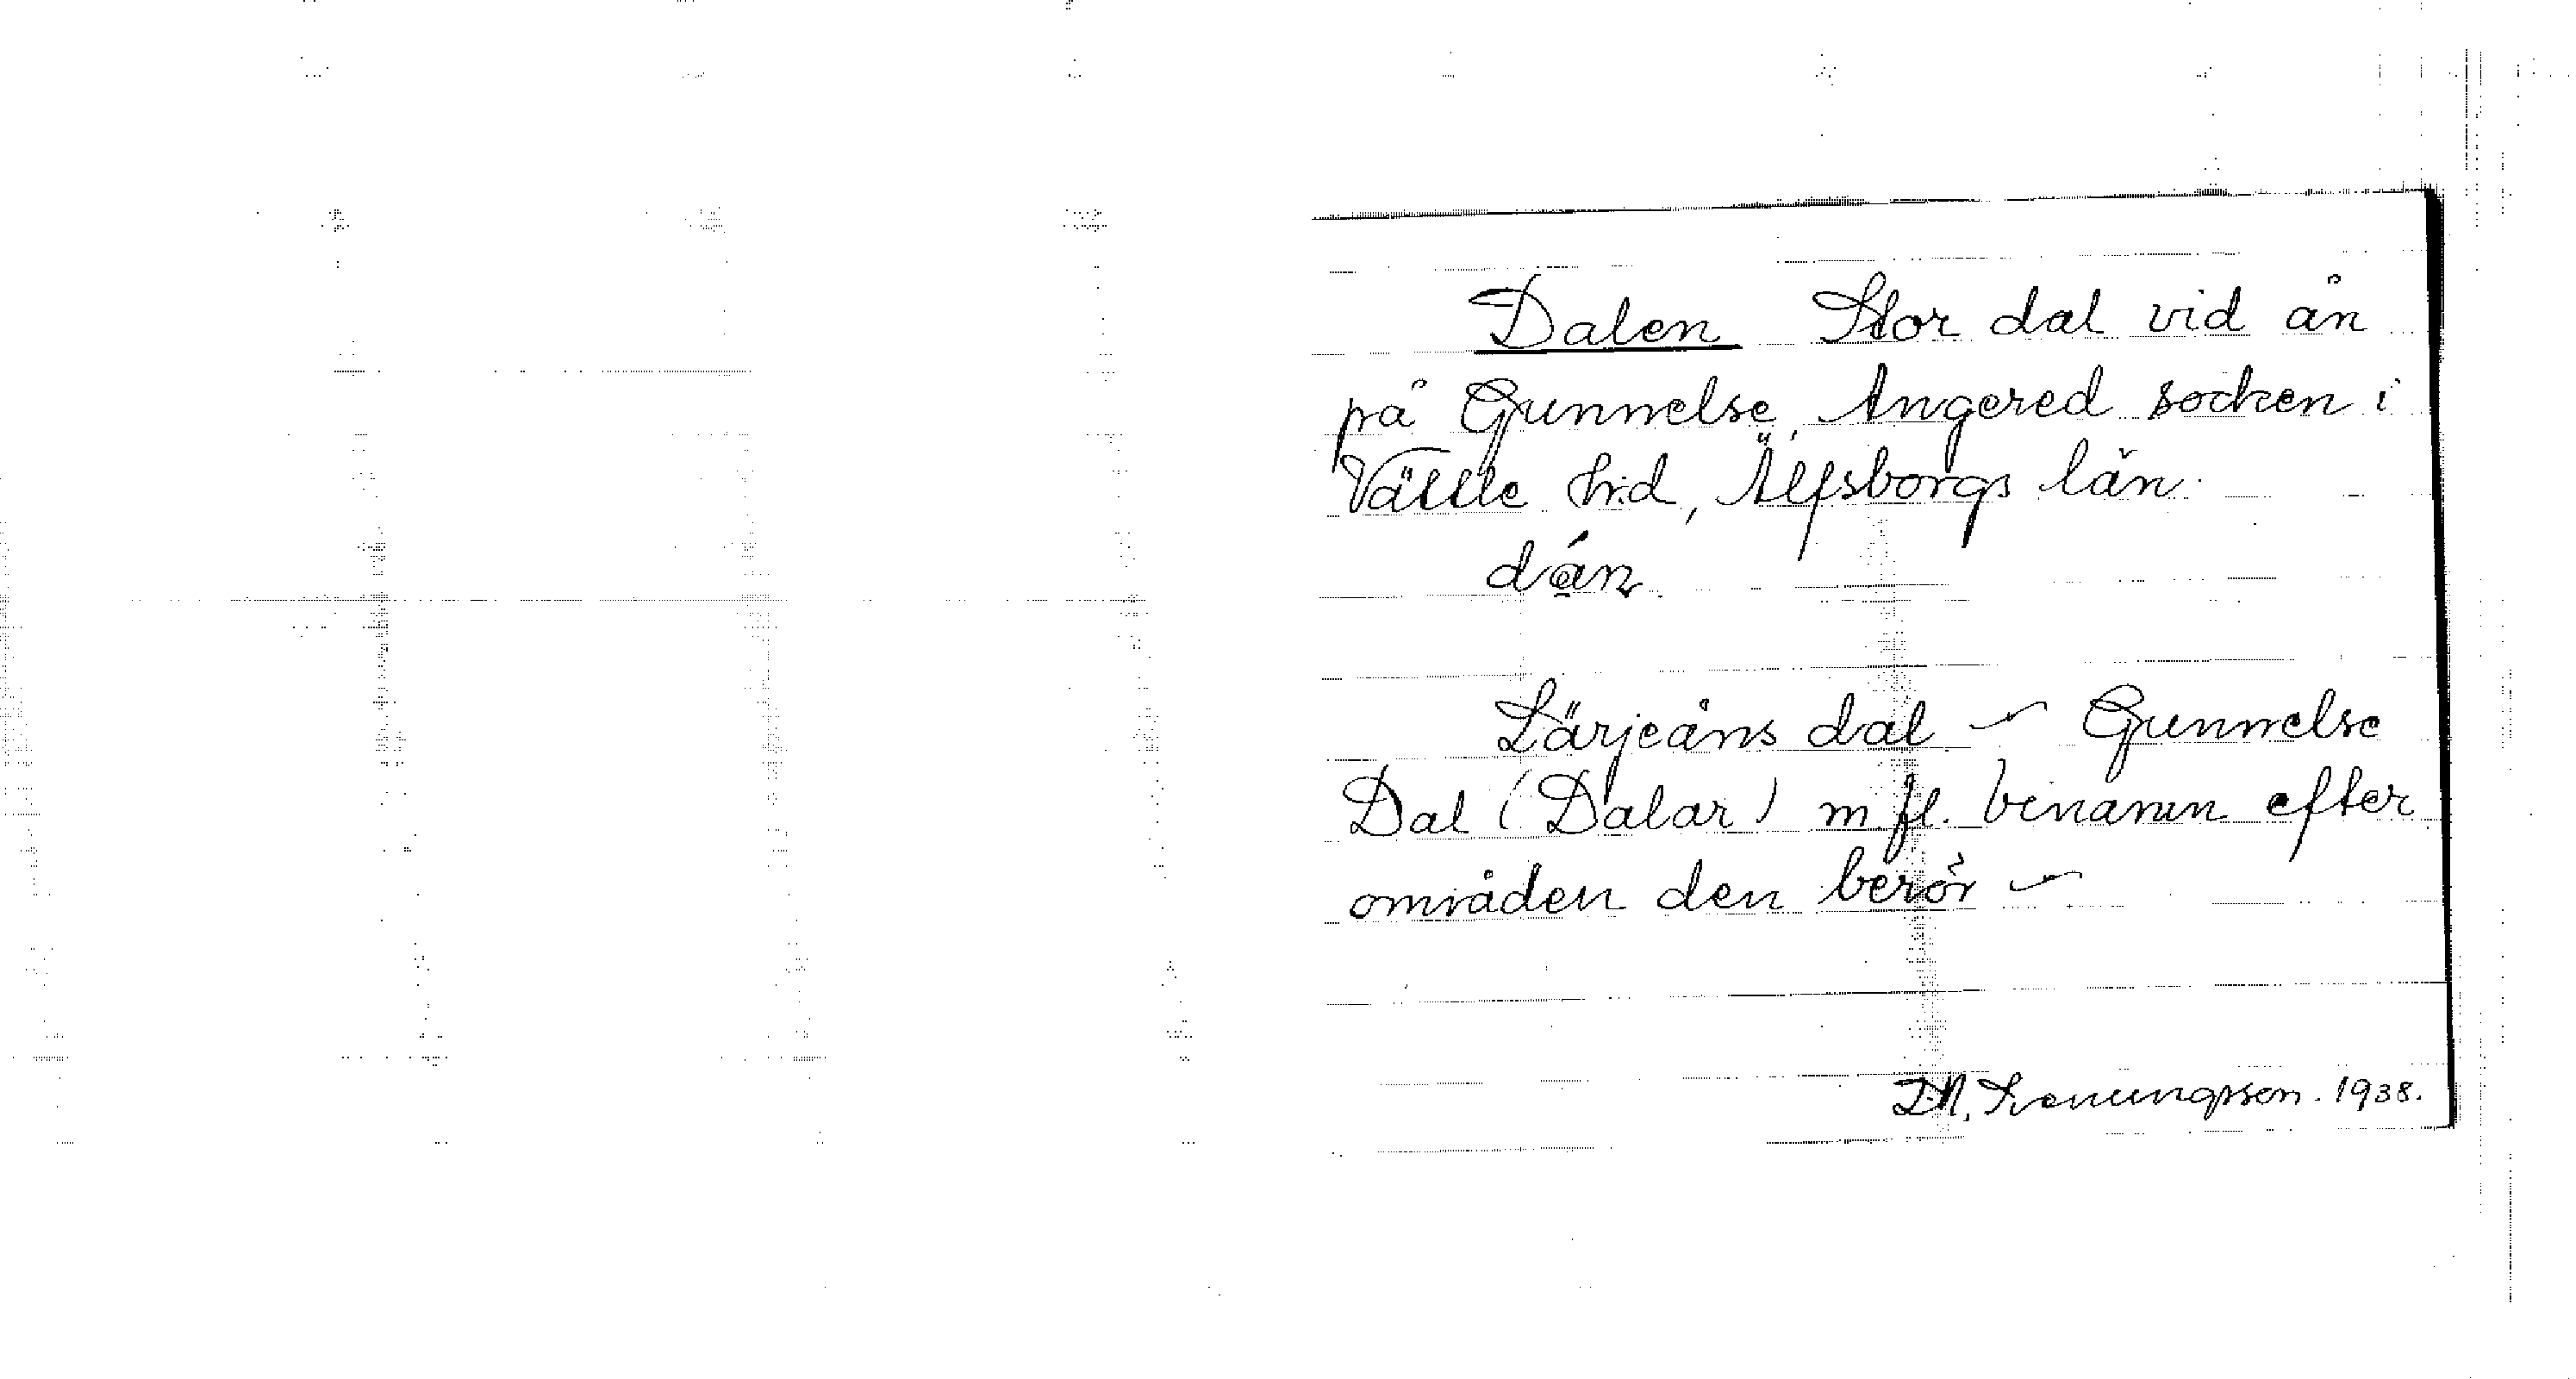 Dalen Stor dal vid ån
på Gunnelse, Angered socken i
Vättle hrd, Älfsborgs län.
dán.
Lärjeåns dal – Gunnelse
Dal (Dalar) m.fl. binamn efter
områden den berör –
Svenungsson. 1938.